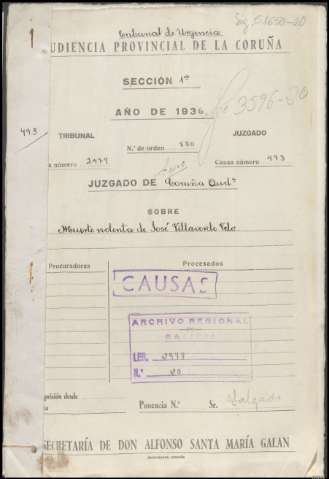 Sig. S.1650-20
Tribunal de Urgencia
UDIENCIA PROVINCIAL DE LA CORUÑA
SECCIÓN 1ª
3596-20
AÑO DE 1936
493
TRIBUNAL
JUZGADO
N.º de orden 880
a número 2179
Causa número 493
JUZGADO DE Coruña Aud.ª
SOBRE
Muerte violenta de José Villaverde Velo
Procuradores
Procesados
CAUSAS
ARCHIVO REGIONAL
GALICIA
LEG.
N.º 20
prisión desde
Ponencia N.º
Sr. Salgado
SECRETARÍA DE DON ALFONSO SANTA MARÍA GALAN